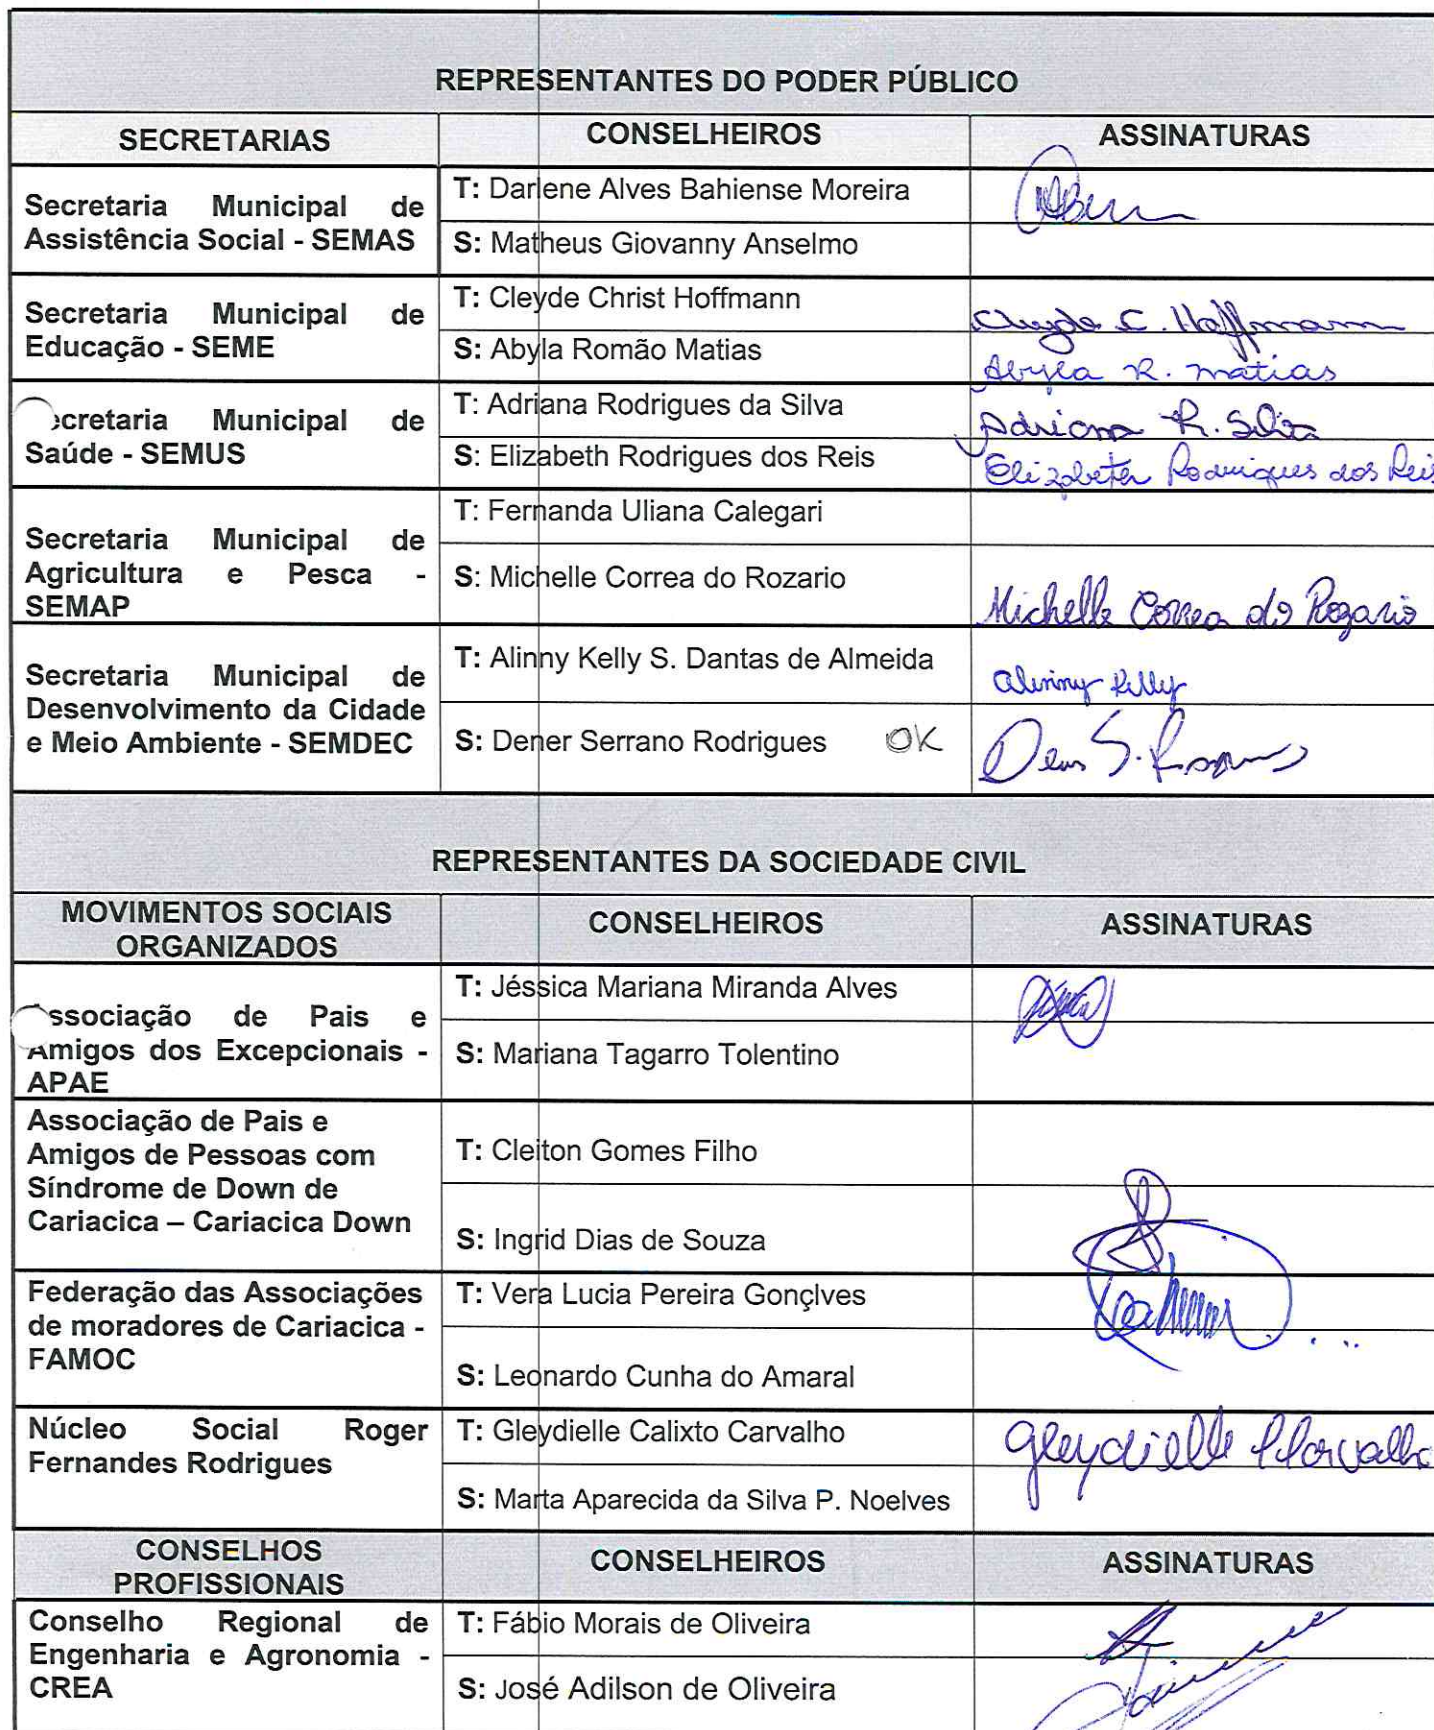 REPRESENTANTES DO PODER PÚBLICO
SECRETARIAS CONSELHEIROS ASSINATURAS
Secretaria Municipal de
Assistência Social - SEMAS
T: Darlene Alves Bahiense Moreira
S: Matheus Giovanny Anselmo
Secretaria Municipal de
Educação - SEME
T: Cleyde Christ Hoffmann
Cleyde C. Hoffmann
S: Abyla Romão Matias
Abyla R. matias
ecretaria Municipal de
Saúde - SEMUS
T: Adriana Rodrigues da Silva
Adriana R. Silva
S: Elizabeth Rodrigues dos Reis
Elizabeth Rodrigues dos Reis
Secretaria Municipal de
Agricultura e Pesca -
SEMAP
T: Fernanda Uliana Calegari
S: Michelle Correa do Rozario
Michelle Correa do Rozario
Secretaria Municipal de
Desenvolvimento da Cidade
e Meio Ambiente - SEMDEC
T: Alinny Kelly S. Dantas de Almeida
Alinny Kelly
S: Dener Serrano Rodrigues OK
REPRESENTANTES DA SOCIEDADE CIVIL
MOVIMENTOS SOCIAIS
ORGANIZADOS
CONSELHEIROS ASSINATURAS
ssociação de Pais e
Amigos dos Excepcionais -
APAE
T: Jéssica Mariana Miranda Alves
S: Mariana Tagarro Tolentino
Associação de Pais e
Amigos de Pessoas com
Síndrome de Down de
Cariacica – Cariacica Down
T: Cleiton Gomes Filho
S: Ingrid Dias de Souza
Federação das Associações
de moradores de Cariacica -
FAMOC
T: Vera Lucia Pereira Gonçlves
S: Leonardo Cunha do Amaral
Núcleo Social Roger
Fernandes Rodrigues
T: Gleydielle Calixto Carvalho
Gleydielle C Carvalho
S: Marta Aparecida da Silva P. Noelves
CONSELHOS
PROFISSIONAIS
CONSELHEIROS ASSINATURAS
Conselho Regional de
Engenharia e Agronomia -
CREA
T: Fábio Morais de Oliveira
S: José Adilson de Oliveira